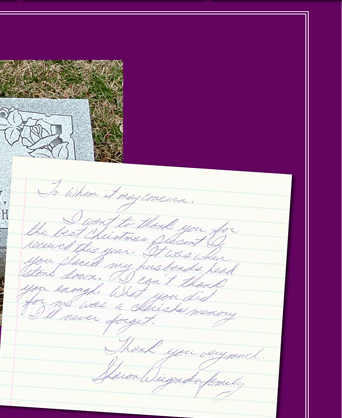 To whom it may concern,
I want to thank you for
the best Christmas present I
received this year. It was when
you placed my husbands head
stone down. I can't thank
you enough. What you did
for me was a memory
I'll never forget.
Thank you very much
Sharon family